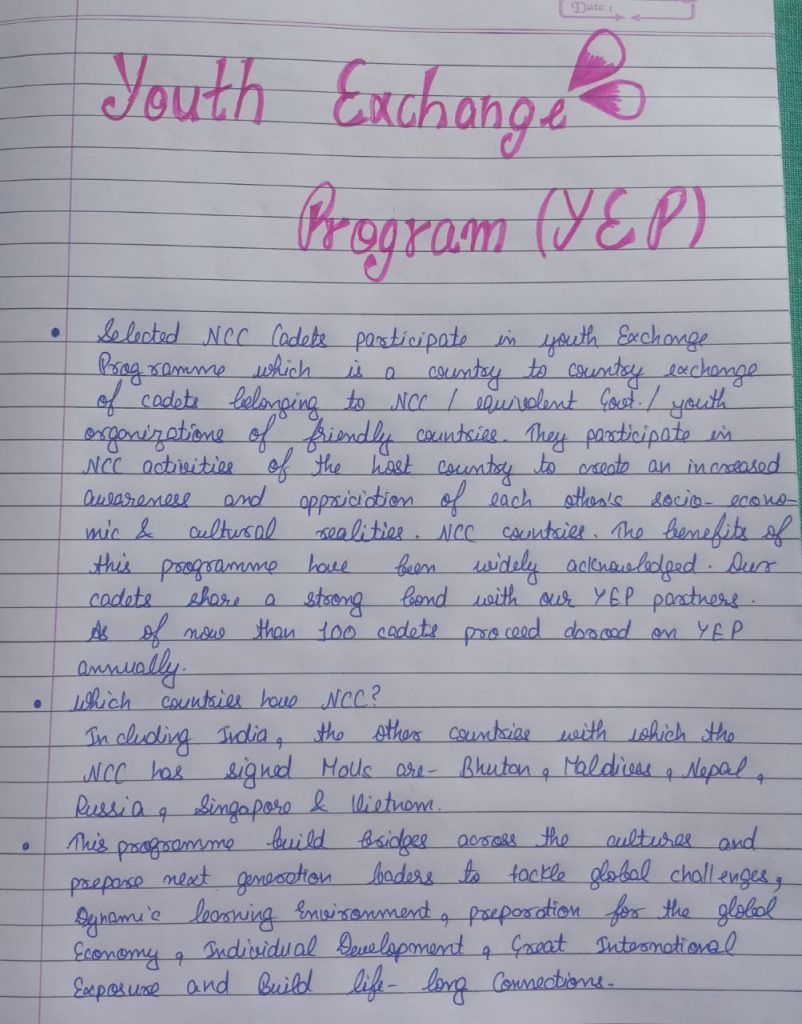 Date :
Youth Exchange
Program (YEP)
• Selected NCC Cadets participate in youth Exchange
Programme which is a country to country exchange
of cadets belonging to NCC / equivalent Govt. / youth
organizations of friendly countries. They participate in
NCC activities of the host country to create an increased
awareness and appriciation of each other's socio-econo-
mic & cultural realities. NCC countries. The benefits of
this programme have been widely acknowledged. Our
cadets share a strong bond with our YEP partners.
As of now than 100 cadets proceed abroad on YEP
annually.
• Which countries have NCC?
Including India, the other countries with which the
NCC has signed MoUs are- Bhutan, Maldives, Nepal,
Russia, Singapore & Vietnam.
• This programme build bridges across the cultures and
prepare next generation leaders to tackle global challenges,
Dynamic learning Environment, preparation for the global
Economy, Individual Development, Great International
Exposure and Build life-long Connections.